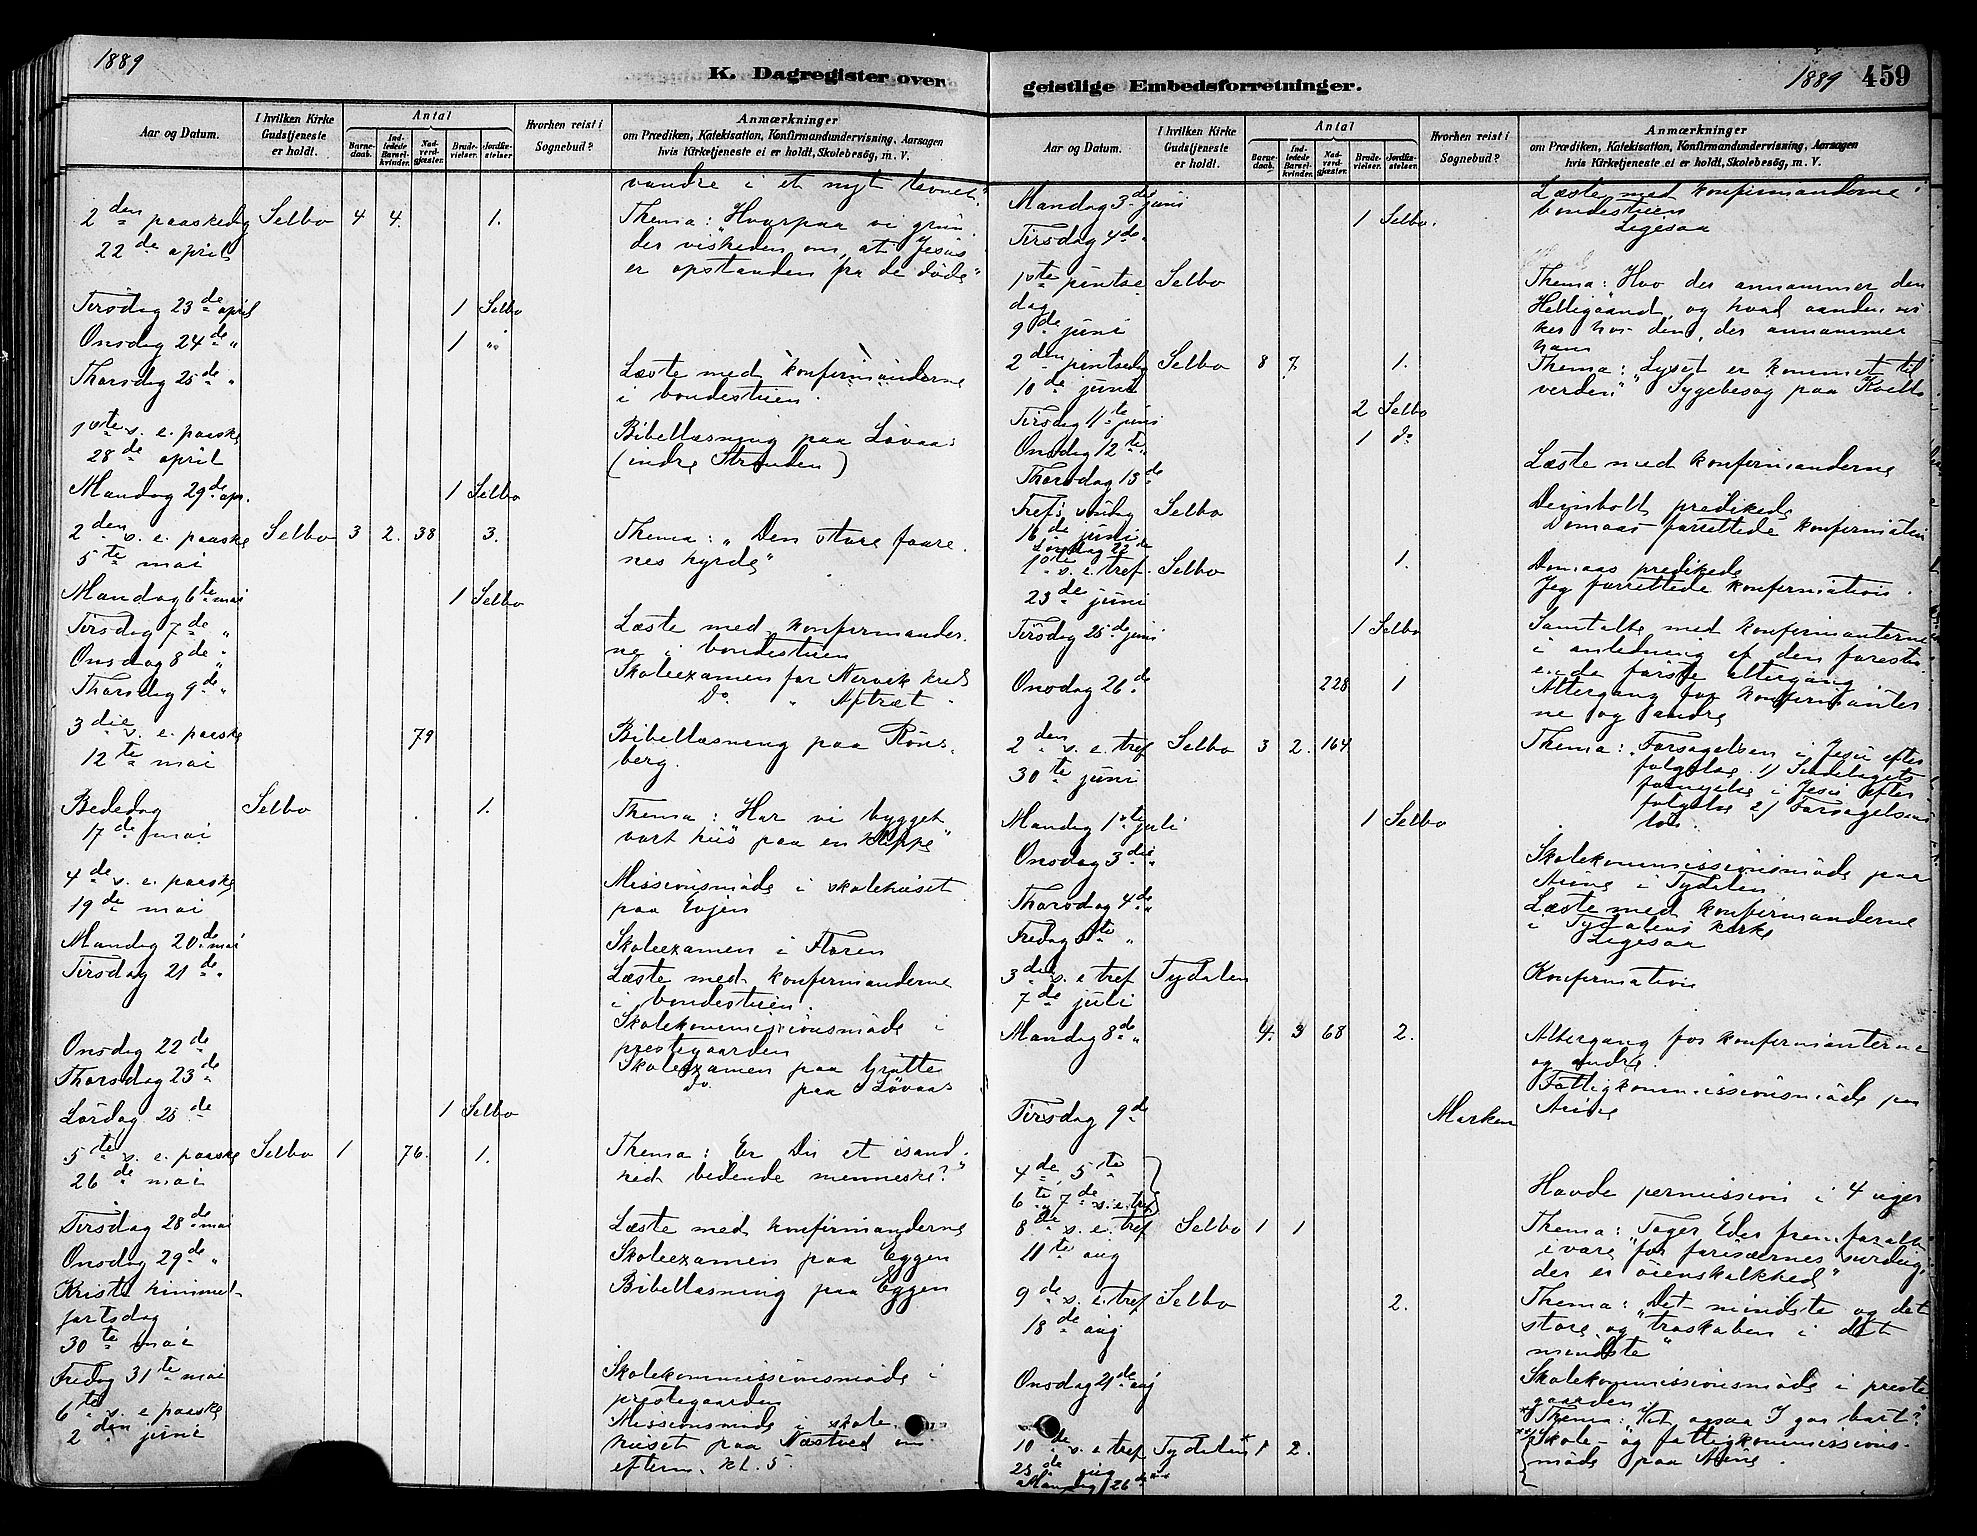 1889
K. Dagregister over
Aar og Datum.
I hvilken Kirke Gudstjeneste er holdt.
Antal
Barne-daab.
Ind-ledede Barsel-kvinder.
Nad-verd-gjæster.
Brude-vielser.
Jordfæ-stelser
Hvorhen reist i Sognebud?
Anmærkninger
om Prædiken, Katekisation, Konfirmandundervisning, Aarsagen
hvis Kirketjeneste ei er holdt, Skolebesög, m. V.
vandre i et nyt levnet"
2den paaskedag Selbo 4 4. 1. Thema: "Hvorpaa vi grun-
22de april der visheden om, at Jesus
er opstanden fra de døde"
Tirsdag 23de april 1 Selbo
Onsdag 24de " 1 "
Thorsdag 25de " Læste med konfirmanderne
i bondestuen.
1ste s. e. paaske Bibellæsning paa Løvaas
28de april (indre Stranden)
Mandag 29de apr. 1 Selbo
2den s. e. paaske Selbo 3 2. 38 3. Thema: "Den store faare-
5te mai nes hyrde"
Mandag 6te mai 1 Selbo
Tirsdag 7de " Læste med konfirmander-
ne i bondestuen
Onsdag 8de " Skoleexamen for Nervik kreds
Thorsdag 9de " Do. " Aftræt "
3die s. e. paaske 79 Bibellæsning paa Røns-
12te mai berg.
Bededag Selbo 1. Thema: "Har vi bygget
17de mai vort hus paa en klippe"
4de s. e. paaske Missionsmøde i skolehuset
19de mai paa Evjen
Mandag 20de mai Skoleexamen i Floren
Tirsdag 21de " Læste med konfirmanderne
i bondestuen.
Skolekommissionsmøde i
Onsdag 22de prestegaarden
Thorsdag 23de Skoleexamen paa Grøtte
do. paa Løvaas
Lørdag 25de 1 Selbo
5te s. e. paaske Selbo 1 76. 1. Thema: "Er Du et i sand-
26de mai hed bedende menneske?"
Tirsdag 28de mai Læste med konfirmanderne
Onsdag 29de " Skoleexamen paa Eggen
Kristi himmel- Bibellæsning paa Eggen
fartsdag
30te mai
Fredag 31te mai Skolekommissionsmøde i
prestegaarden
6te s. e. paaske Missionsmøde i skole-
2den juni huset paa Næstved om
efterm. kl. 5
geistlige Embedsforretninger.
1889 459
Aar og Datum.
I hvilken Kirke Gudstjeneste er holdt.
Antal
Barne-daab.
Ind-ledede Barsel-kvinder.
Nad-verd-gjæster.
Brude-vielser.
Jordfæ-stelser.
Hvorhen reist i Sognebud?
Anmærkninger
om Prædiken, Katekisation, Konfirmandundervisning, Aarsagen
hvis Kirketjeneste ei er holdt, Skolebesög, m. V.
Mandag 3de juni 1 Selbo. Læste med konfirmanderne i
bondestuen
Tirsdag 4de " Ligesaa
1ste pintse Selbo Thema: Hvo der annammer den
dag Helligaand, og hvad aanden vir
9de juni ker hos den, der annammer
ham
2den pintsedag Selbo 8 7. 1. Thema: "Lyset er kommet til
10de juni verden" Sygebesøg paa Kvello
Tirsdag 11te juni 2 Selbo
Onsdag 12te " 1 do
Thorsdag 13de Læste med konfirmanderne
Tref. søndag Selbo Deinbolt predikede
16de juni Domaas forrettede konfirmation
Lørdag 22de
1ste s. e. tref. Selbo 1. Domaas predikede
23de juni Jeg forrettede konfirmation.
Tirsdag 25de juni 1 Selbo Samtalte med konfirmanterne
i anledning af den foresta
ende første altergang.
Onsdag 26de 228 1 Altergang for konfirmanter
ne og andre
2den s. e. tref Selbo 3 2. 164 Thema: "Forsagelsen i Jesu efter
30te juni følgelse. 1) Sindelagets
fornyelse i Jesu efter
følgelse 2) Forsagelsens
løn.
Mandag 1ste juli 1 Selbo
Onsdag 3die " Skolekommissionsmøde paa
Aune i Tydalen
Thorsdag 4de " Læste med konfirmanderne
i Tydalens kirke
Fredag 5te " Ligesaa
3die s. e. tref Tydalen Konfirmation
7de juli
Mandag 8de " 4. 3 68 2. Altergang for konfirmanterne
og andre.
Fattigkommissionsmøde paa
Aune
Tirsdag 9de Marken
4de, 5te
6te, 7de s. e. tref Havde permission i 4 uger
8de s. e. tref Selbo 1 1 Thema: "Tager Eder fremforalt
11te aug i vare for farisæernes surdeig,
der er øienskalkhed"
9de s. e. tref Selbo 2. Thema: "Det mindste og det
18de aug store, og troskaben i det
mindste"
Onsdag 21de aug Skolekommissionsmøde i preste
gaarden
Thema: "Vil ogsaa I gaa bort?"
10de s. e. tref Tydalen 1 2. Skole- og fattigkommissions-
25de aug møde paa Aune.
Mandag 26de aug